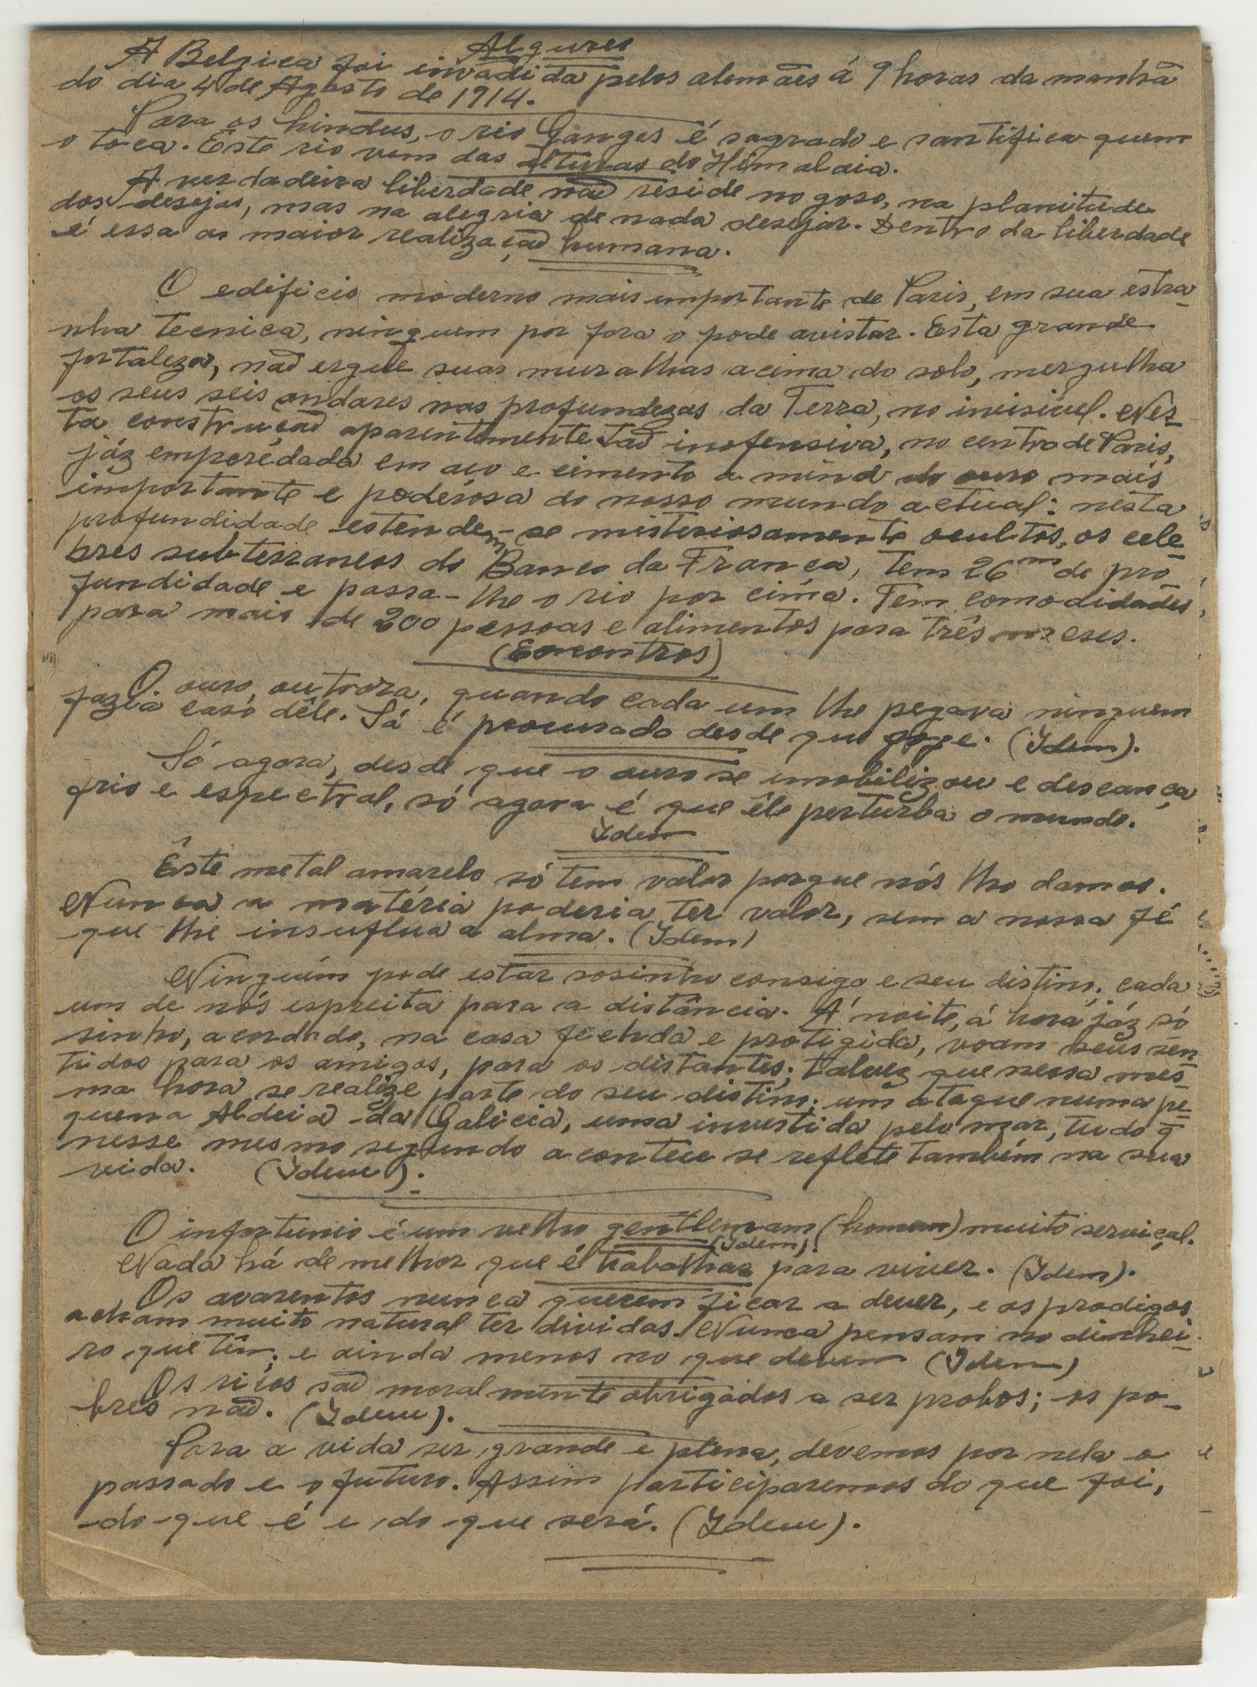 Algures
A Belgica foi invadida pelos alemães á 9 horas da manhã
do dia 4 de Agosto de 1914.
Para os hindus, o rio Ganges é sagrado e santifica quem
o toca. Este rio vem das alturas do Himalaia.
A verdadeira liberdade não reside no goso, na planitude
dos desejos, mas na alegria de nada desejar. Dentro da liberdade
é essa a maior realização humana.
O edificio moderno mais importante de Paris, em sua estra-
nha tecnica, ninguem por fora o pode avistar. Esta grande
fortaleza, não ergue suas muralhas acima do solo, mergulha
os seus seis andares nas profundezas da Terra, no invisivel. Nes-
ta construção aparentemente tão inofensiva, no centro de Paris,
jáz emparedada em aço e cimento a mina do ouro mais
importante e poderosa do nosso mundo actual: nesta
profundidade estendem-se misteriosamente ocultos, os cele-
bres subterraneos do Banco da França, Tem 26 m de pro
fundidade e passa-lhe o rio por cima. Tem comodidades
para mais de 200 pessoas e alimentos para três meses.
(Encontros)
O ouro, outrora, quando cada um lhe pegava ninguem
fazia caso dêle. Só é procurado desde que foge. (Idem).
Só agora, desde que o ouro se imobilizou e descança
frio e espectral, só agora é que êle perturba o mundo.
Idem
Êste metal amarelo só tem valor porque nós lho damos.
Nunca a matéria poderia ter valor, sem a nossa fé
que lhe insuflua a alma. (Idem)
Ninguém pode estar sosinho consigo e seu distino; cada
um de nós espreita para a distância. Á noite, á hora jáz só
sinho, acordado, na casa fechada e protigida, voam seus sen
tidos para os amigos, para os distantes; talvez que nessa mes-
ma hora se realize parte do seu distino; um ataque numa pe-
quena Aldeia da Galicia, uma investida pelo mar, tudo q̄
nesse mesmo segundo acontece se reflete também na sua
vida. (Idem).
O infortunio é um velho gentlemam (homem) muito serviçal.
(Idem).
Nada há de melhor que é trabalhar para viver. (Idem).
Os avarentos nunca querem ficar a dever, e os prodigos
acham muito natural ter dividas. Nunca pensam no dinhei-
ro que têm; e ainda menos no que devem (Idem)
Os ricos são moralmente obrigados a ser probos; os po-
bres não. (Idem).
Para a vida ser grande e plena, devemos por nela o
passado e o futuro. Assim participaremos do que foi,
do que é e do que será. (Idem).